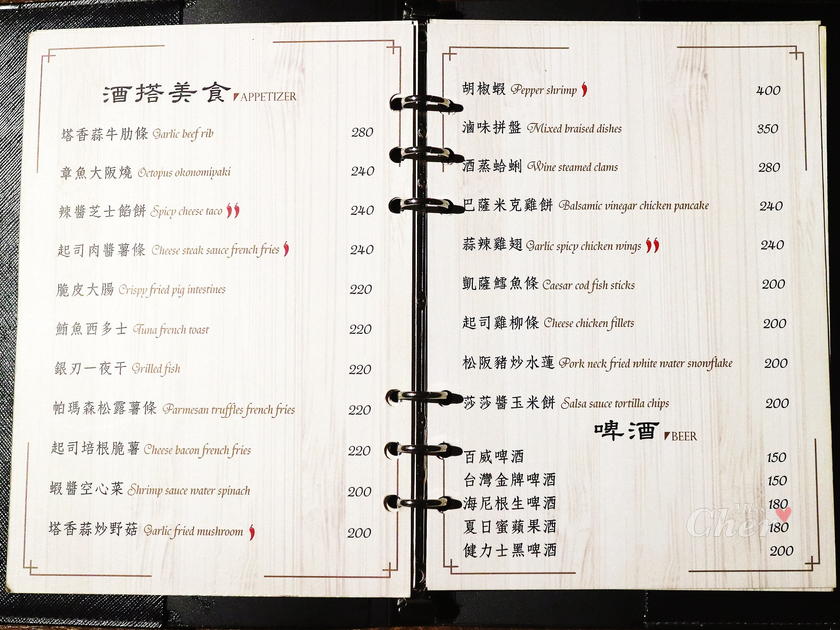 酒搭美食 APPETIZER
塔香蒜牛肋條 Garlic beef rib 280
章魚大阪燒 Octopus okonomiyaki 240
辣醬芝士餡餅 Spicy cheese taco 240
起司肉醬薯條 Cheese steak sauce french fries 240
脆皮大腸 Crispy fried pig intestines 220
鮪魚西多士 Tuna french toast 220
銀刃一夜干 Grilled fish 220
帕瑪森松露薯條 Parmesan truffles french fries 220
起司培根脆薯 Cheese bacon french fries 220
蝦醬空心菜 Shrimp sauce water spinach 200
塔香蒜炒野菇 Garlic fried mushroom 200
胡椒蝦 Pepper shrimp 400
滷味拼盤 Mixed braised dishes 350
酒蒸蛤蜊 Wine steamed clams 280
巴薩米克雞餅 Balsamic vinegar chicken pancake 240
蒜辣雞翅 Garlic spicy chicken wings 240
凱薩鱈魚條 Caesar cod fish sticks 200
起司雞柳條 Cheese chicken fillets 200
松阪豬炒水蓮 Pork neck fried white water snowflake 200
莎莎醬玉米餅 Salsa sauce tortilla chips 200
啤酒 BEER
百威啤酒 150
台灣金牌啤酒 150
海尼根生啤酒 180
夏日蜜蘋果酒 180
健力士黑啤酒 200
Cher